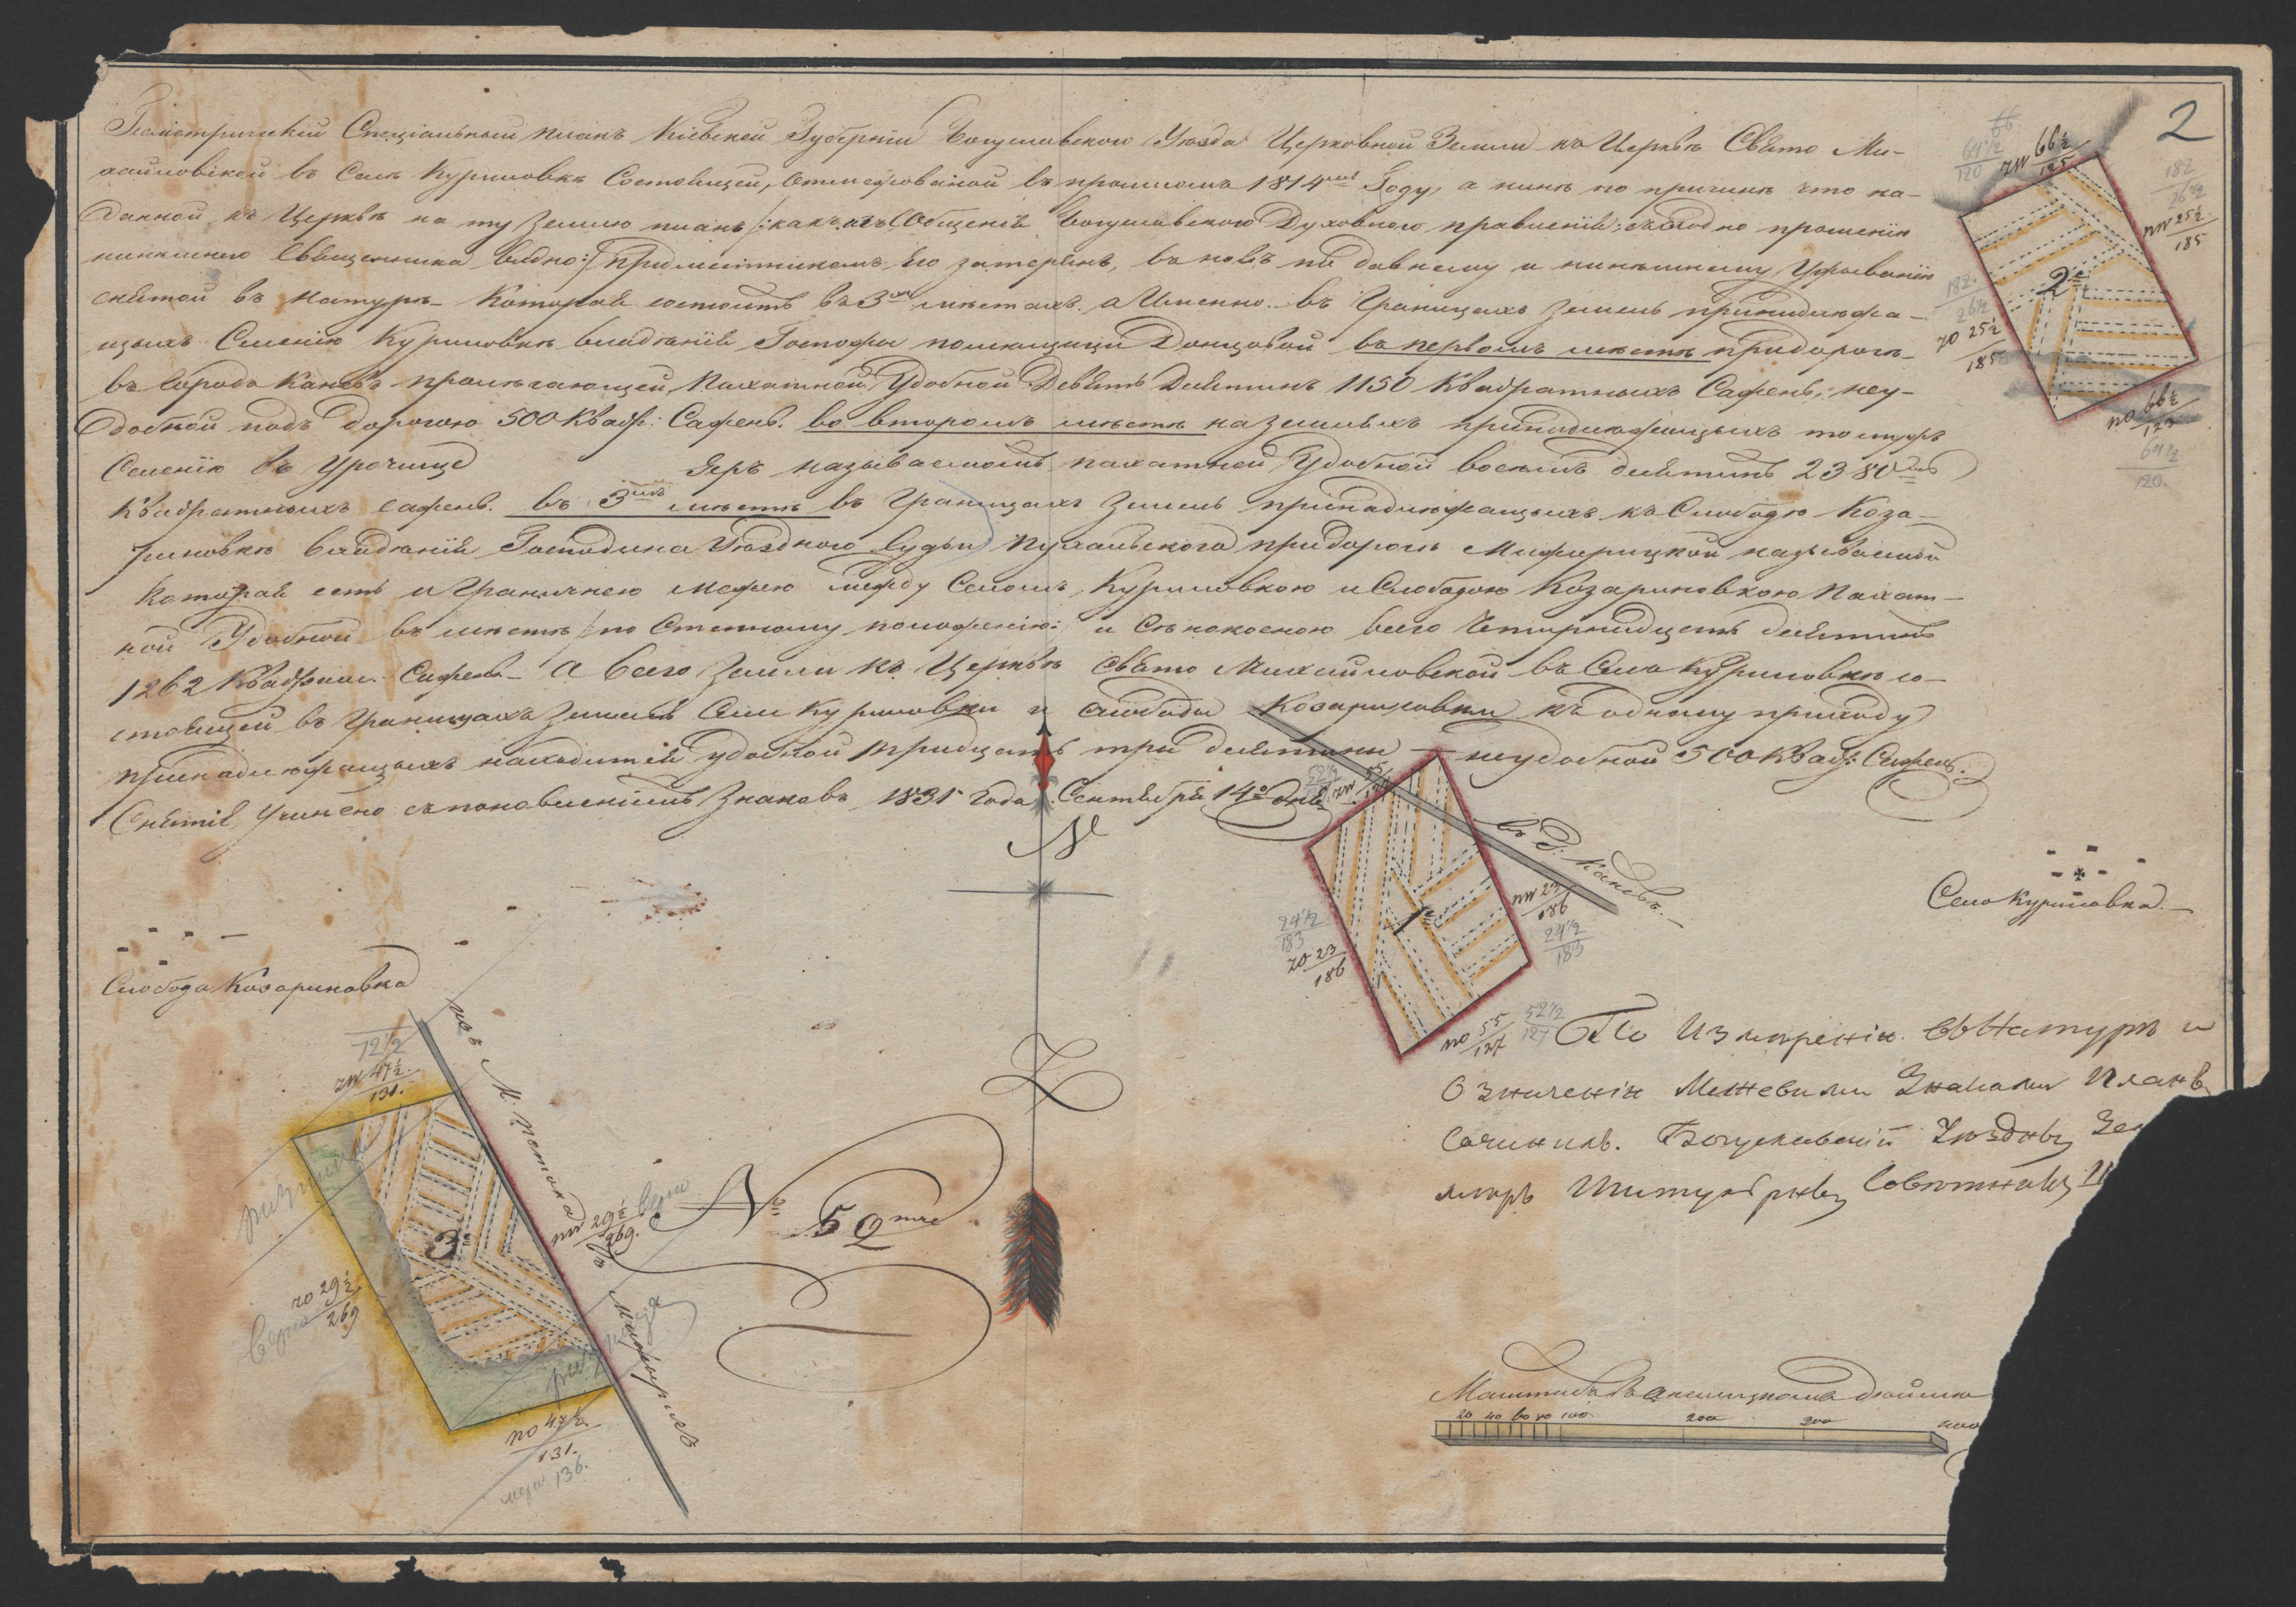 2
Геометрический Специальный планъ Кіевской Губерніи Богуславского Уезда Церковной Земли къ Церквѣ Свято Ми-
хайловской въ Селѣ Куриловкѣ Состоящей, въ прошломъ 1814 Году, а нынѣ по причинѣ что на-
данной къ Церквѣ на ту Землю планъ /: какъ изъ Сообщенія Богуславского Духовного правленія: прошенія
нинешнего Священника видно :/ Его затерянъ, въ новъ по давнему и нинѣшнему
снятой въ натурѣ Которая состоитъ въ 3хъ мѣстахъ. а Именно. въ Границахъ Земель принадлежа-
щыхъ Селенію Куриловкѣ владѣнія Госпожи помещици Донцовой въ первомъ мѣстѣ придорогѣ
въ Городъ Каневъ пролѣгающей, Пахатной Удобной Девять Десятинъ 1150 Квадратныхъ Сажень, неу-
добной подъ дорогою 500 Квадр: Сажень. во второмъ мѣстѣ на Земляхъ принадлежащыхъ томужъ
Селенію въ Урочище Яръ называемомъ пахатной Удобной восемь десятинъ 2380
Квадратныхъ сажень. въ 3мъ мѣстѣ въ Границахъ Земель принадлежащыхъ къ Слободѣ Коза-
риновкѣ владѣнія Господина Уездного Судьи придорогѣ называемой
Которая есть и Граничнею межею между Селомъ Куриловкою и Слободою Козариновкою Пахат-
ной Удобной въ мѣстѣ /: по Степному положенію: и Сѣнокосною всего Четирнадцать десятинъ
1262 Квадрат. Сажень. А всего Земли къ Церквѣ Свято Михайловской въ Селѣ Куриловкѣ со-
стоящей въ Границахъ Земель Села Куриловки и слободы Козариновки къ одному приходу
принадлежащыхъ находится Удобной тридцать три десятины неудобной 500 Квадр: Сажень.
Снятіе Учинено съ поновленіемъ Знаковъ 1831 Года Сентября 14го дня
66
64 1/2
120
zw 66 1/2
125
182
26 1/2
nw 25 1/2
185
2е
182
26 1/2
zo 25 1/2
185
no 66 1/2
64 1/2
120.
52 1/2
zw 55
въ Г. Каневъ.
1е
nw 23
186
24 1/2
183
24 1/2
183
zo 23
186
no 55
127
52 1/2
127
N
Z
Село Куриловка.
Слобода Козариновка
изъ М. Потока
въ
12 1/2
zw 47 1/2
131.
3е
nw 29 1/2
269.
верно
zo 29 1/2
269
верно
no 47 1/2
131.
136.
№ 52
По Измѣренію въ Натурѣ и
Означенію Межевими Знаками Планъ
Сочинилъ. Богуславскій Уѣздны
мѣръ Титулярны Совѣтникъ
Маштабъ въ англицкомъ дюймѣ
20 40 60 80 100 200 300 400